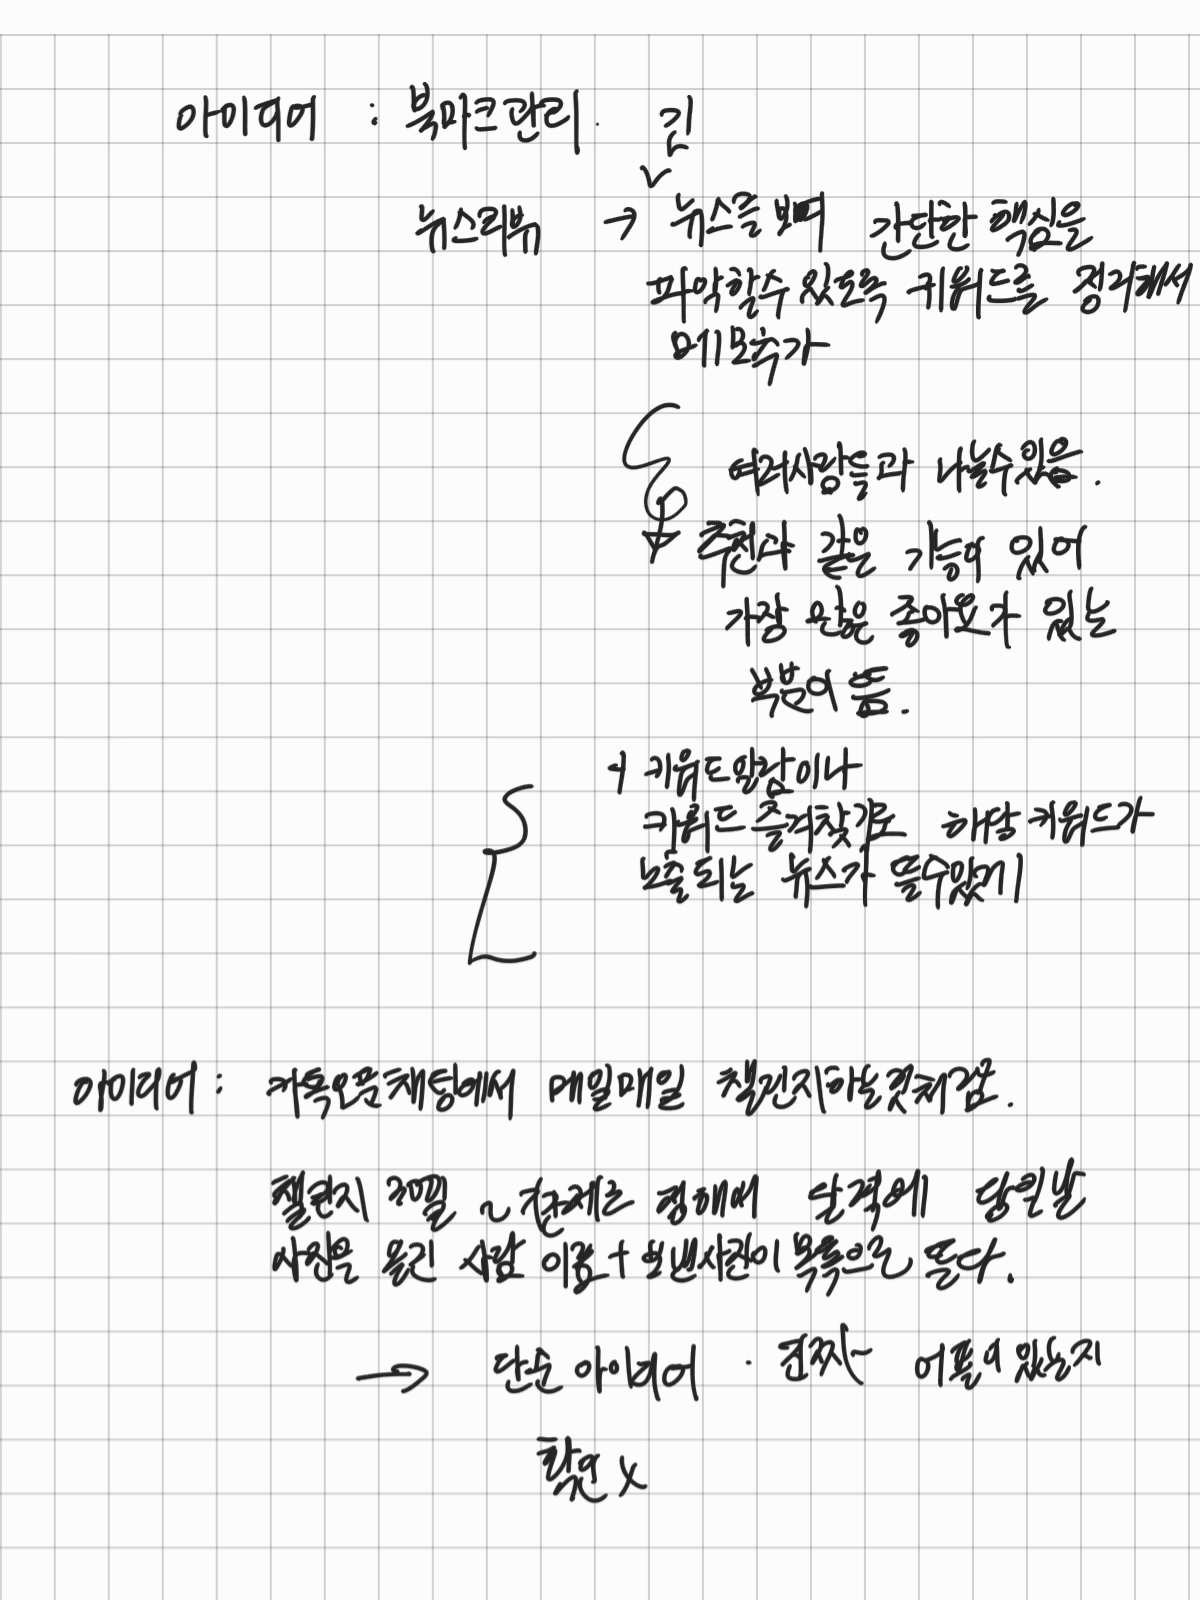 아이디어 : 북마크관리. 긴
뉴스리뷰 → 뉴스를 보며 간단한 핵심을
파악할수 있도록 키워드를 정리해서
메모추가
여러사람들과 나눌수있음.
추천과 같은 기능이 있어
가장 많은 좋아요가 있는
부분이 뜸.
+ 키워드알람이나
키워드 즐겨찾기로 해당 키워드가
노출되는 뉴스가 뜰수있게
아이디어 : 카톡오픈채팅에서 매일매일 챌린지하는것처럼.
챌린지 30일 정해서 달력에 당일날
사진을 올린 사람 이름 + 보낸사진이 목록으로 뜬다.
→ 단순 아이디어 . 진짜~ 어플이 있는지
확인 x